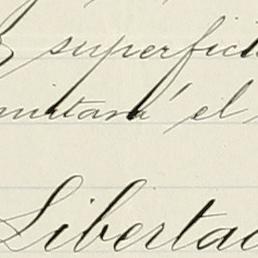 superfici
mitara' el
Libertad